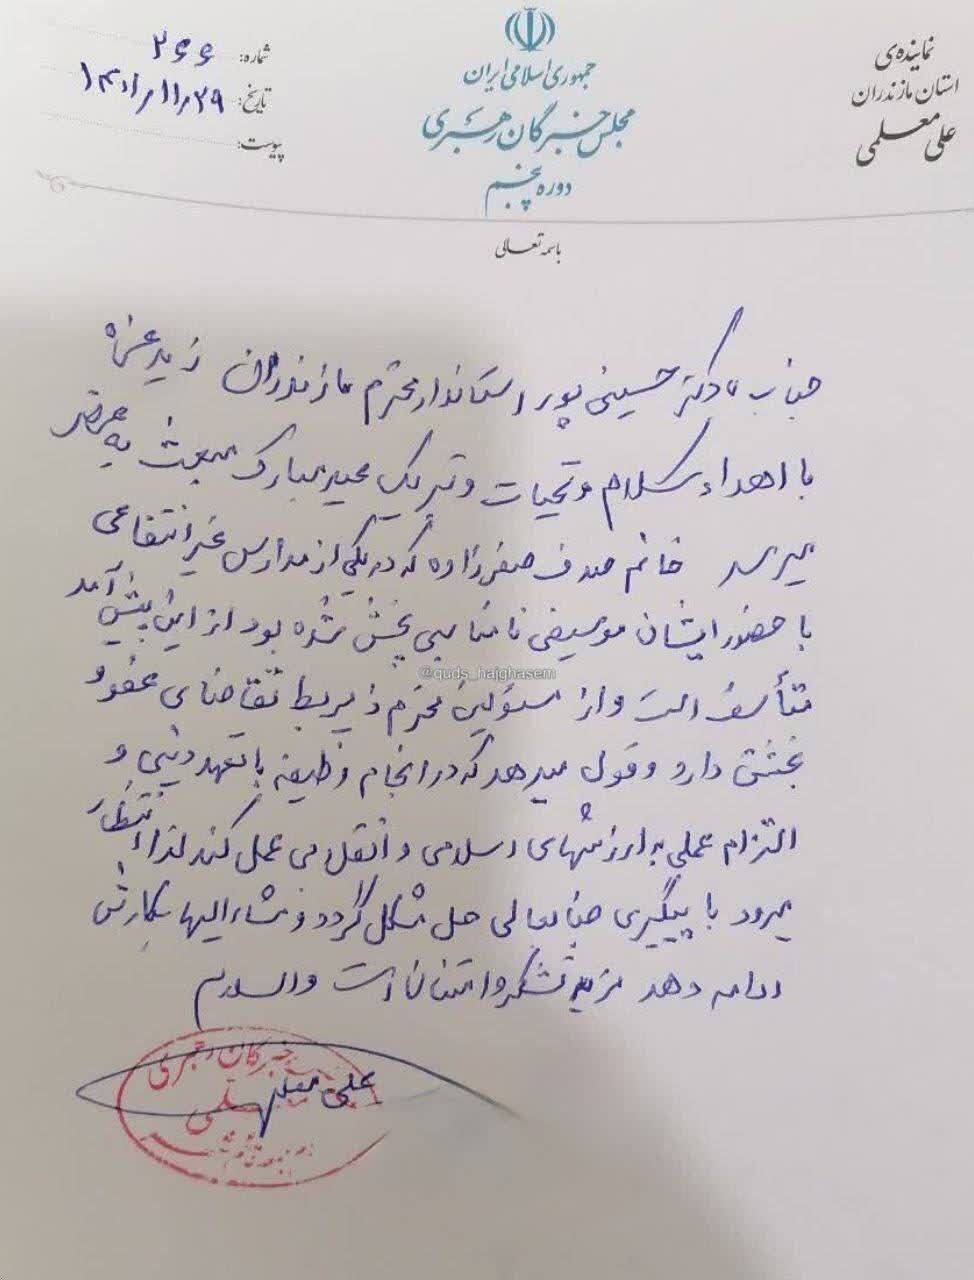 نماینده‌ی
استان مازندران
علی معلمی
جمهوری اسلامی ایران
مجلس خبرگان رهبری
دوره پنجم
شماره: ۲۶۶
تاریخ: ۱۴۰۱/۱۱/۲۹
پیوست:
باسمه تعالی
جناب دکتر حسینی پور استاندار محترم مازندران زید عزه
با اهداء سلام و تحیات و تبریک عید مبارک مبعث به عرض
میرسد خانم صدف صفرزاده که در یکی از مدارس غیرانتفاعی
با حضور ایشان موسیقی نامناسبی پخش شده بود از این پیش آمد
@quds_hajghasem
متأسف است و از مسئولین محترم ذیربط تقاضای عفو و
بخشش دارد و قول میدهد که در انجام وظیفه با تعهد دینی و
التزام عملی به ارزشهای اسلامی و انقلابی عمل کند لذا انتظار
میرود با پیگیری جنابعالی حل مشکل گردد و مشارالیها بکارش
ادامه دهد مزید تشکر و امتنان است والسلام
علی معلمی
خبرگان رهبری